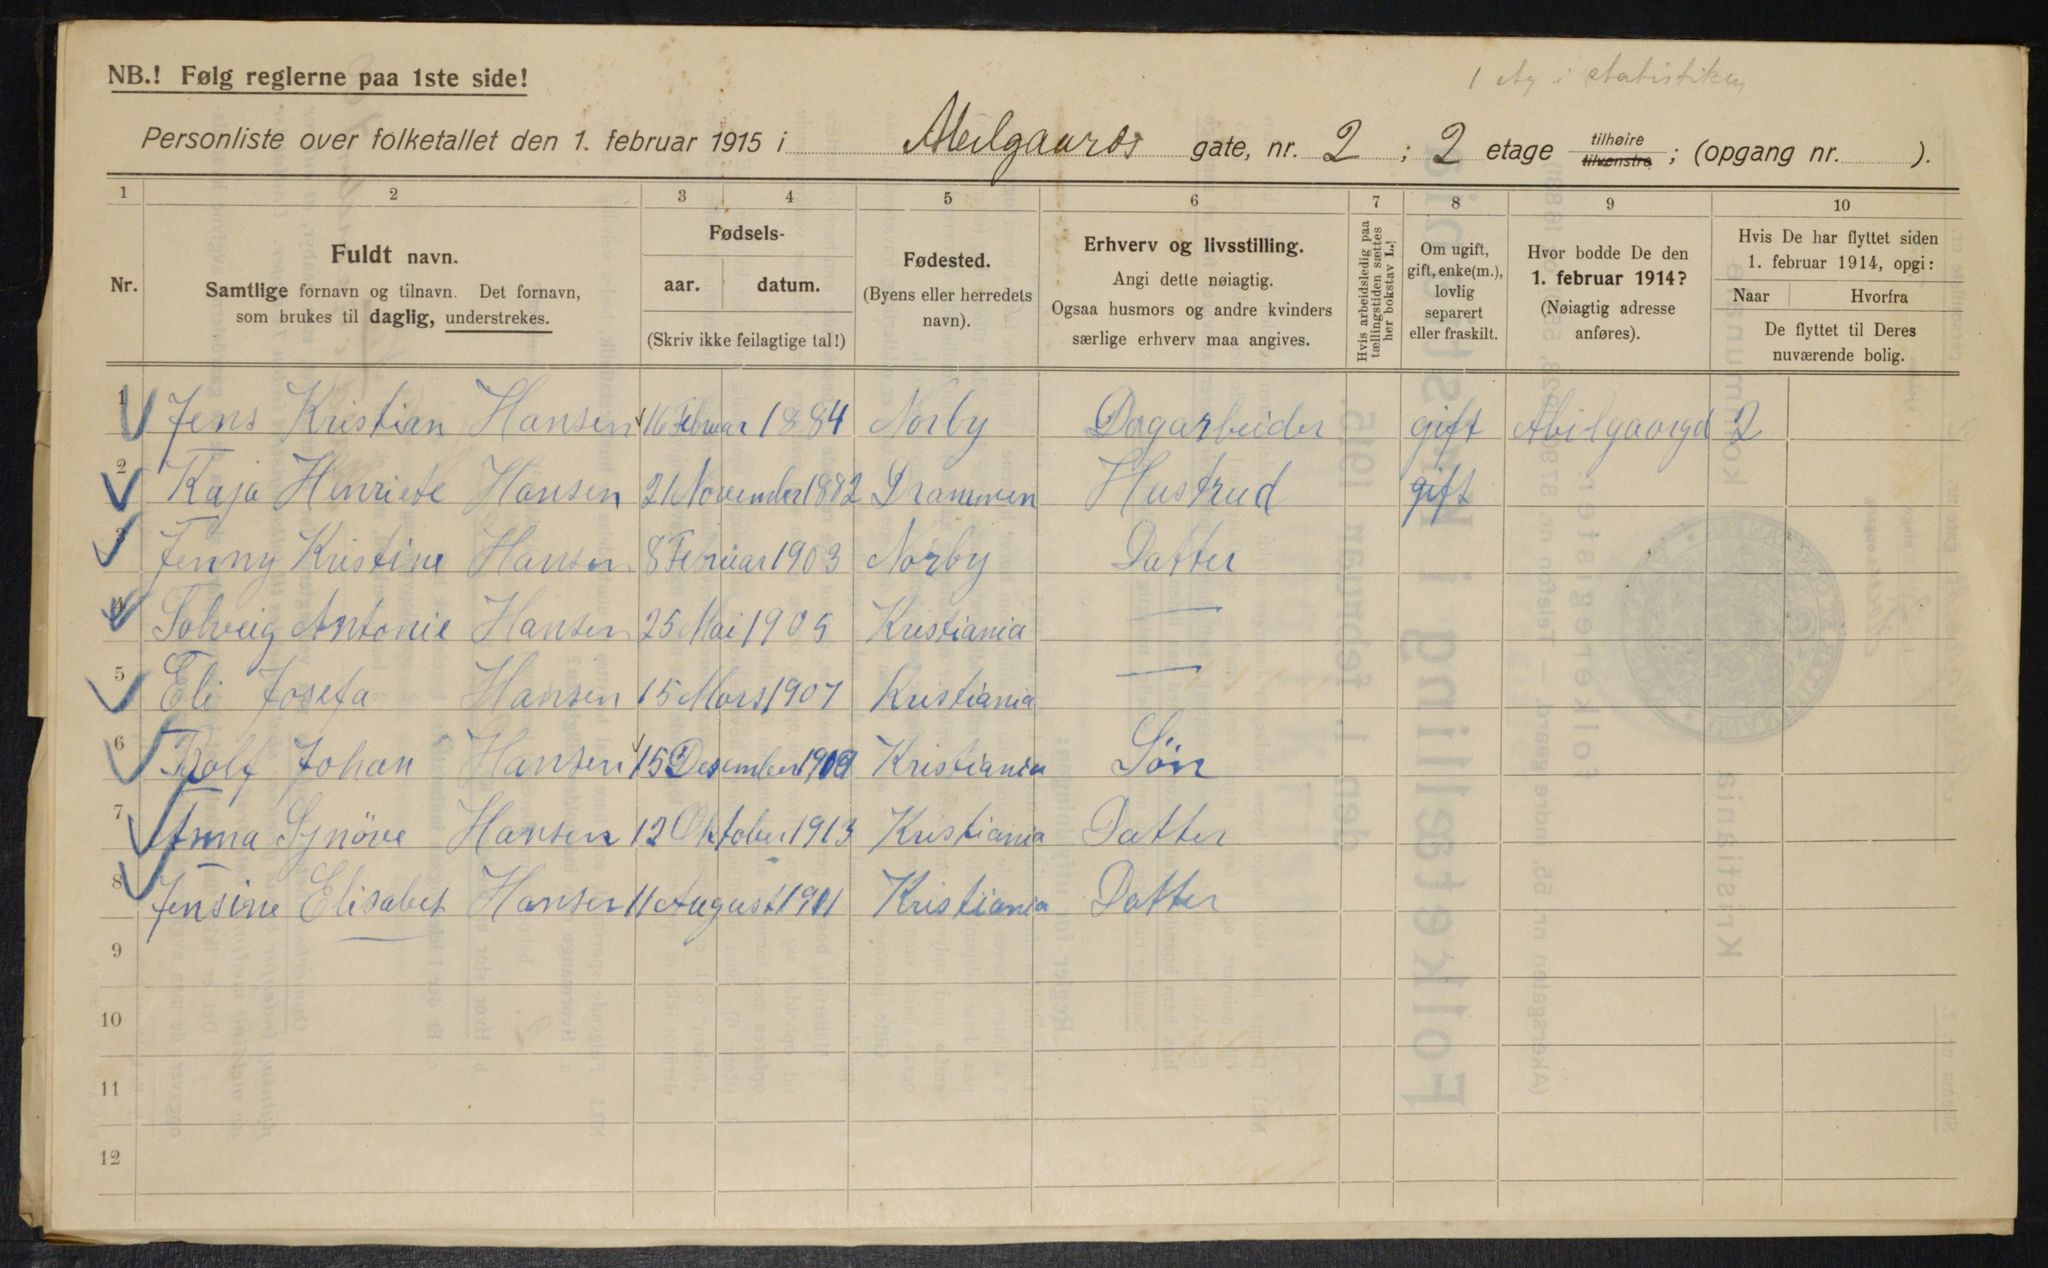 NB.! Følg reglerne paa 1ste side!
1 i statistiken
Personliste over folketallet den 1. februar 1915 i Abelgaards gate, nr. 2 ; 2 etage tilhøire tilvenstre ; (opgang nr. ).
1 2 3 4 5 6 7 8 9 10
Nr.
Fuldt navn.
Samtlige fornavn og tilnavn. Det fornavn,
som brukes til daglig, understrekes.
Fødsels-
aar. datum.
(Skriv ikke feilagtige tal!)
Fødested.
(Byens eller herredets
navn).
Erhverv og livsstilling.
Angi dette nøiagtig.
Ogsaa husmors og andre kvinders
særlige erhverv maa angives.
Hvis arbeidsledig paa
tællingstiden sættes
her bokstav L.!
Om ugift,
gift, enke(m.),
lovlig
separert
eller fraskilt.
Hvor bodde De den
1. februar 1914?
(Nøiagtig adresse
anføres).
Hvis De har flyttet siden
1. februar 1914, opgi:
Naar Hvorfra
De flyttet til Deres
nuværende bolig.
1 Jens Kristian Hansen 16 Februar 1884 Norby Dagarbeider gift Abilgaargd 2
2 Kaja Henriete Hansen 21 November 1882 Drammen Hustrud gift
3 Jenny Kristine Hansen 8 Februar 1903 Nörby Datter
4 Solveig Antonie Hansen 25 Mai 1905 Kristiania —
5 Eli Josefa Hansen 15 Mars 1907 Kristiania —
6 Rolf Johan Hansen 15 Desember 1909 Kristiania Sön
7 Anna Synöve Hansen 12 Oktober 1913 Kristiania Datter
8 Jensine Elisabet Hansen 11 August 1911 Kristiania Datter
9
10
11
12